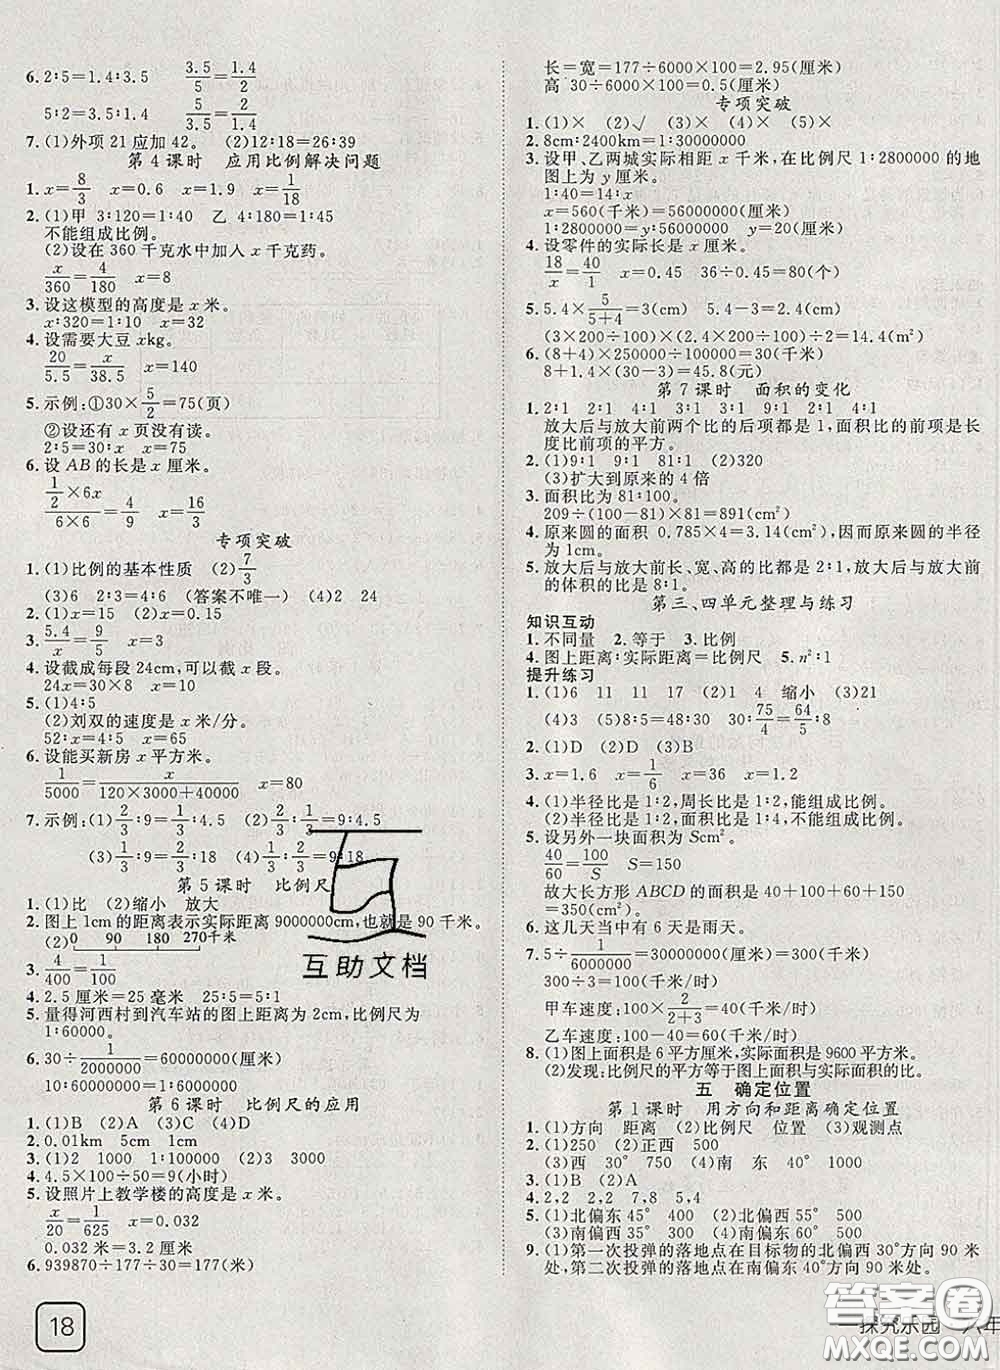 6. 2∶5=1.4∶3.5 3.5/5=1.4/2
5∶2=3.5∶1.4 5/3.5=2/1.4
7. (1)外项 21 应加 42。 (2)12∶18=26∶39
第 4 课时 应用比例解决问题
1. x=8/3 x=0.6 x=1.9 x=1/18
2. (1)甲 3∶120=1∶40 乙 4∶180=1∶45
不能组成比例。
(2)设在 360 千克水中加入 x 千克药。
x/360=4/180 x=8
3. 设这模型的高度是 x 米。
x∶320=1∶10 x=32
4. 设需要大豆 xkg。
20/5.5=x/38.5 x=140
5. 示例:①30×5/2=75(页)
②设还有 x 页没有读。
2∶5=30∶x x=75
6. 设 AB 的长是 x 厘米。
1/2×6x/6×6=4/9 x=16/3
专项突破
1. (1)比例的基本性质 (2)7/3
(3)6 2∶3=4∶6 (答案不唯一) (4)2 24
2. (1)x=15 (2)x=0.15
3. 5.4/x=9/5 x=3
4. 设截成每段 24cm,可以截 x 段。
24x=30×8 x=10
5. (1)4∶5
(2)刘双的速度是 x 米/分。
52∶x=4∶5 x=65
6. 设能买新房 x 平方米。
1/5000=x/120×3000+40000 x=80
7. 示例:(1)2/3∶9=1/3∶4.5 (2)2/3∶1/3=9∶4.5
(3)1/3∶9=2/3∶18 (4)1/3∶2/3=9∶18
第 5 课时 比例尺
1. (1)比 (2)缩小 放大
2. 图上 1cm 的距离表示实际距离 9000000cm,也就是 90 千米。
(2) 0 90 180 270千米
3. 4/400=1/100
4. 2.5 厘米=25 毫米 25∶5=5∶1
5. 量得河西村到汽车站的图上距离为 2cm,比例尺为
1∶60000。
6. 30÷1/2000000=60000000(厘米)
60000000厘米=600千米
第 6 课时 比例尺的应用
1. (1)B (2)A (3)C (4)D
2. 0.01km 5cm 1cm
3. (1)2 1000 1∶50000 (2)3 3000
4. 4.5×100÷50=9(小时)
5. 设照片上教学楼的高度是 x 米。
x/20=1/625 x=0.032
0.032 米=3.2 厘米
6. 939870÷177÷30=177(厘米)
18
长=宽=177÷6000×100=2.95(厘米)
高 30÷6000×100=0.5(厘米)
专项突破
1. (1)× (2)√ (3)× (4)×
2. 8cm∶2400km=1∶30000000
3. 设甲、乙两城实际相距 x 千米,在比例尺 1∶2800000 的地
图上为 y 厘米。
1∶40=14∶x
x=560(千米)=56000000(厘米)
1∶2800000=y∶56000000 y=20(厘米)
4. 设零件的实际长是 x 厘米。
18/x=40/1 x=0.45 36÷0.45=80(个)
5. 5.4×5/5+4=3(cm) 5.4-3=2.4(cm)
(3×200÷100)×(2.4×200÷100)÷2=14.4(cm²)
6. (8+4)×250000÷100000=30(千米)
8+1.4×(30-3)=45.8(元)
第 7 课时 面积的变化
1. 2∶1 4∶1 3∶1 9∶1 2∶1 4∶1
放大后与放大前两个比的后项都是 1,面积比的前项是长
度比前项的平方。
2. (1)9∶1 9∶1 81∶1 (2)320
(3)扩大到原来的 4 倍
3. 面积比为 81∶100。
209÷(100-81)×81=891(cm²)
4. 原来圆的面积 0.785×4=3.14(cm²),因而原来圆的半径
为 1cm。
5. 放大后与放大前长、宽、高的比都是 2∶1,放大后与放大前
的体积的比是 8∶1。
第三、四单元整理与练习
知识互动
1. 不同量 2. 等于 3. 比例
4. 图上距离∶实际距离=比例尺 5. n²∶1
提升练习
1. (1)6 11 11 17 (2)1 4 缩小 (3)21
(4)3 (5)8∶5=48∶30 30∶75/4=64/5∶8
2. (1)D (2)D (3)B
3. x=1.6 x=1/6 x=36 x=1.2
4. (1)半径比是 1∶2,周长比是 1∶2,能组成比例。
(2)半径比是 1∶2,面积比是 1∶4,不能组成比例。
5. 设另外一块面积为 Scm²。
40/60=100/S S=150
故大长方形 ABCD 的面积是 40+100+60+150
=350(cm²)
6. 这几天当中有 6 天是雨天。
7. 5÷1/6000000=30000000(厘米)=300(千米)
300÷3=100(千米/时)
甲车速度:100×2/2+3=40(千米/时)
乙车速度:100-40=60(千米/时)
8. (1)图上面积是 6 平方厘米,实际面积是 9600 平方米。
(2)发现:比例尺的平方等于图上面积与实际面积的比。
五 确定位置
第 1 课时 用方向和距离确定位置
1. (1)方向 距离 (2)比例尺 位置 (3)观测点
2. (1)250 (2)正西 500
(3)西 30° 750 (4)南 东 40° 500
3. (1)B (2)A
4. 2,2 2,2 7,8 5,4
5. (1)北偏东 45° 400 (2)北偏西 55° 500
(3)南偏西 35° 500 (4)南偏东 70° 600
9. (1)第一次投弹的落地点在目标物的北偏西 30°方向 90 米
处,第二次投弹的落地点在南偏东 40°方向 90 米处。
探究乐园 六年
互助文档
答案圈
MXQE.COM